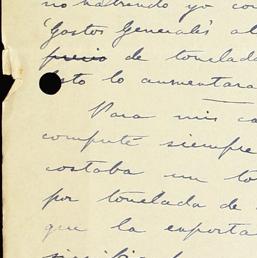 no habiendo yo con
'Gastos Generales' al
precio de tonelada
Esto lo aumentara
Para mis ca
computé siempre
costaba un to
por tonelada de
que la exporta